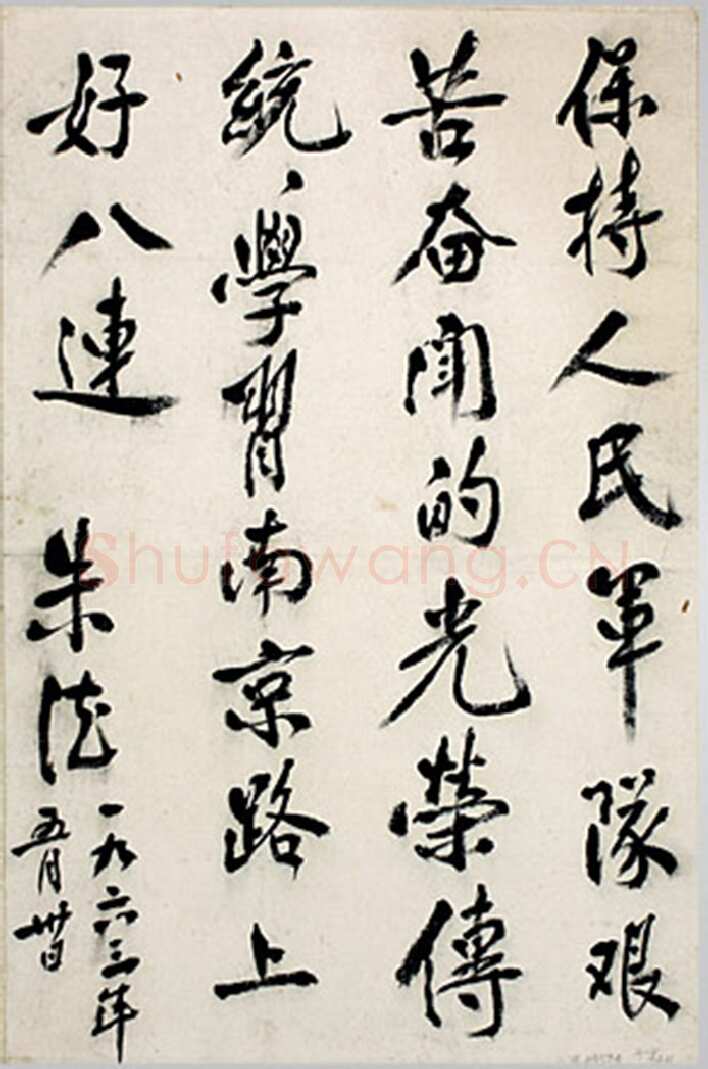 保持人民軍隊艰
苦奋鬥的光榮傳
統、學習南京路上
好八連 朱德
一九六三年
五月卅日
Shufawang.CN